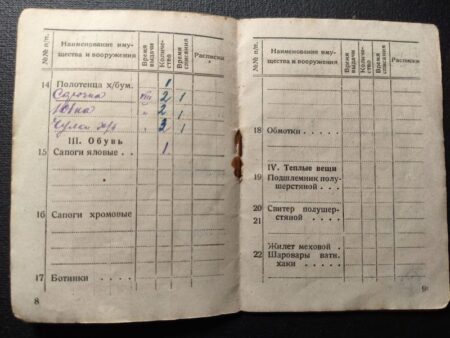 №№ п/п.
Наименование иму-
щества и вооружения
Время
выдачи
Количе-
ство
Время
списания
Расписки
14 Полотенца х/бум. 1
Сорочка VIII 2 1
Юбка " 2 1
Чулки х/б " 2 1
III. Обувь
15 Сапоги яловые . . 1
16 Сапоги хромовые
17 Ботинки . . . .
8
№№ п/п.
Наименование иму-
щества и вооружения
Время
выдачи
Количе-
ство
Время
списания
Расписки
18 Обмотки . . . .
IV. Теплые вещи
19 Подшлемник полу-
шерстяной . . .
20 Свитер полушер-
21 стяной . . . .
Жилет меховой .
22 Шаровары ватн.
хаки . . . . .
9